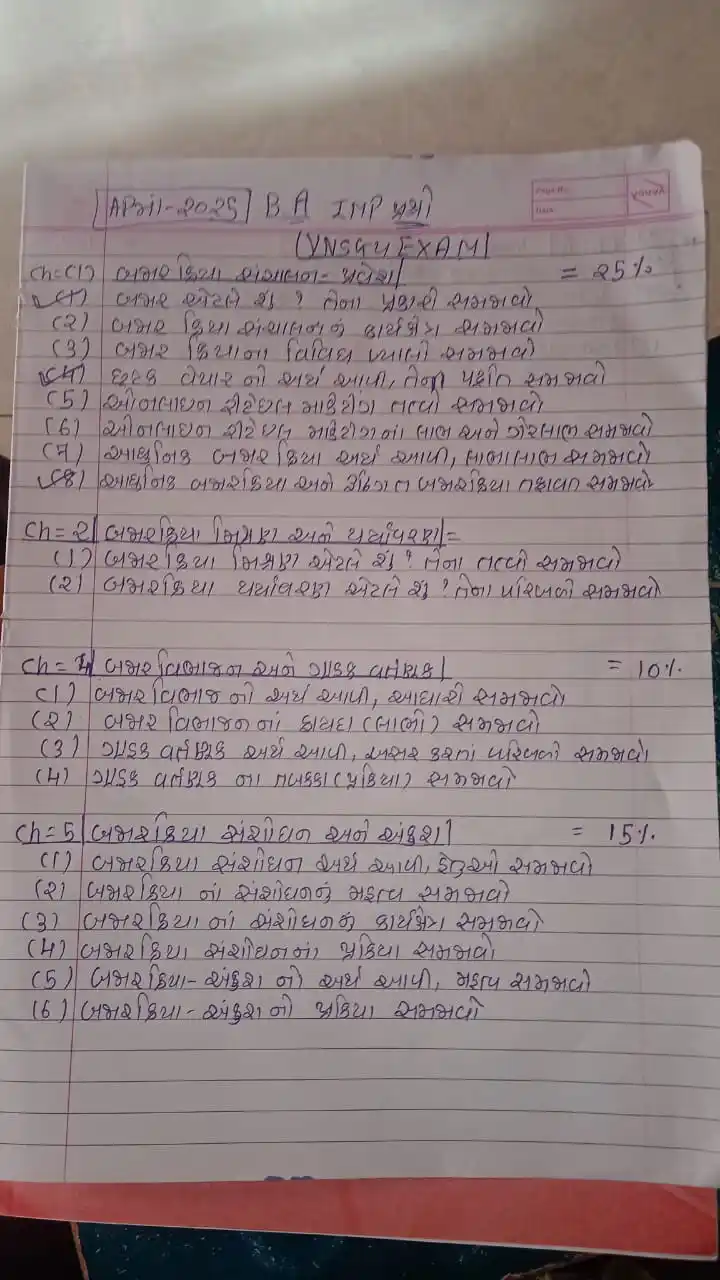 [April-2025] B A IMP પ્રશ્નો
(VNSGU EXAM)
Ch=(1) બજારક્રિયા સંચાલન-પ્રવેશ = 25%
(1) બજાર એટલે શું? તેના પ્રકારો સમજાવો
(2) બજાર ક્રિયા સંચાલનનું કાર્યક્ષેત્ર સમજાવો
(3) બજાર ક્રિયાના વિવિધ ખ્યાલો સમજાવો
(4) છૂટક વેપાર નો અર્થ આપી, તેની પદ્ધતિ સમજાવો
(5) ઓનલાઇન રીટેઇલ માર્કેટીંગ તત્વો સમજાવો
(6) ઓનલાઇન રીટેઇલ માર્કેટીંગનાં લાભ અને ગેરલાભ સમજાવો
(7) આધુનિક બજારક્રિયા અર્થ આપી, લાભાલાભ સમજાવો
(8) આધુનિક બજારક્રિયા અને રૂઢિગત બજારક્રિયા તફાવત સમજાવો
Ch=2 બજારક્રિયા મિશ્રણ અને પર્યાવરણ =
(1) બજારક્રિયા મિશ્રણ એટલે શું? તેના તત્વો સમજાવો
(2) બજારક્રિયા પર્યાવરણ એટલે શું? તેના પરિબળો સમજાવો
Ch=4 બજાર વિભાજન અને ગ્રાહક વર્તણૂક = 10%
(1) બજારવિભાજ નો અર્થ આપી, આધારો સમજાવો
(2) બજાર વિભાજનનાં ફાયદા (લાભો) સમજાવો
(3) ગ્રાહક વર્તણૂક અર્થ આપી, અસર કરતાં પરિબળો સમજાવો
(4) ગ્રાહક વર્તણૂક ના તબક્કા (પ્રક્રિયા) સમજાવો
Ch=5 બજારક્રિયા સંશોધન અને અંકુશ = 15%
(1) બજારક્રિયા સંશોધન અર્થ આપી, હેતુઓ સમજાવો
(2) બજારક્રિયા નાં સંશોધનનું મહત્વ સમજાવો
(3) બજારક્રિયા નાં સંશોધનનું કાર્યક્ષેત્ર સમજાવો
(4) બજારક્રિયા સંશોધનનાં પ્રક્રિયા સમજાવો
(5) બજારક્રિયા-અંકુશ નો અર્થ આપી, મહત્વ સમજાવો
(6) બજારક્રિયા-અંકુશ ની પ્રક્રિયા સમજાવો